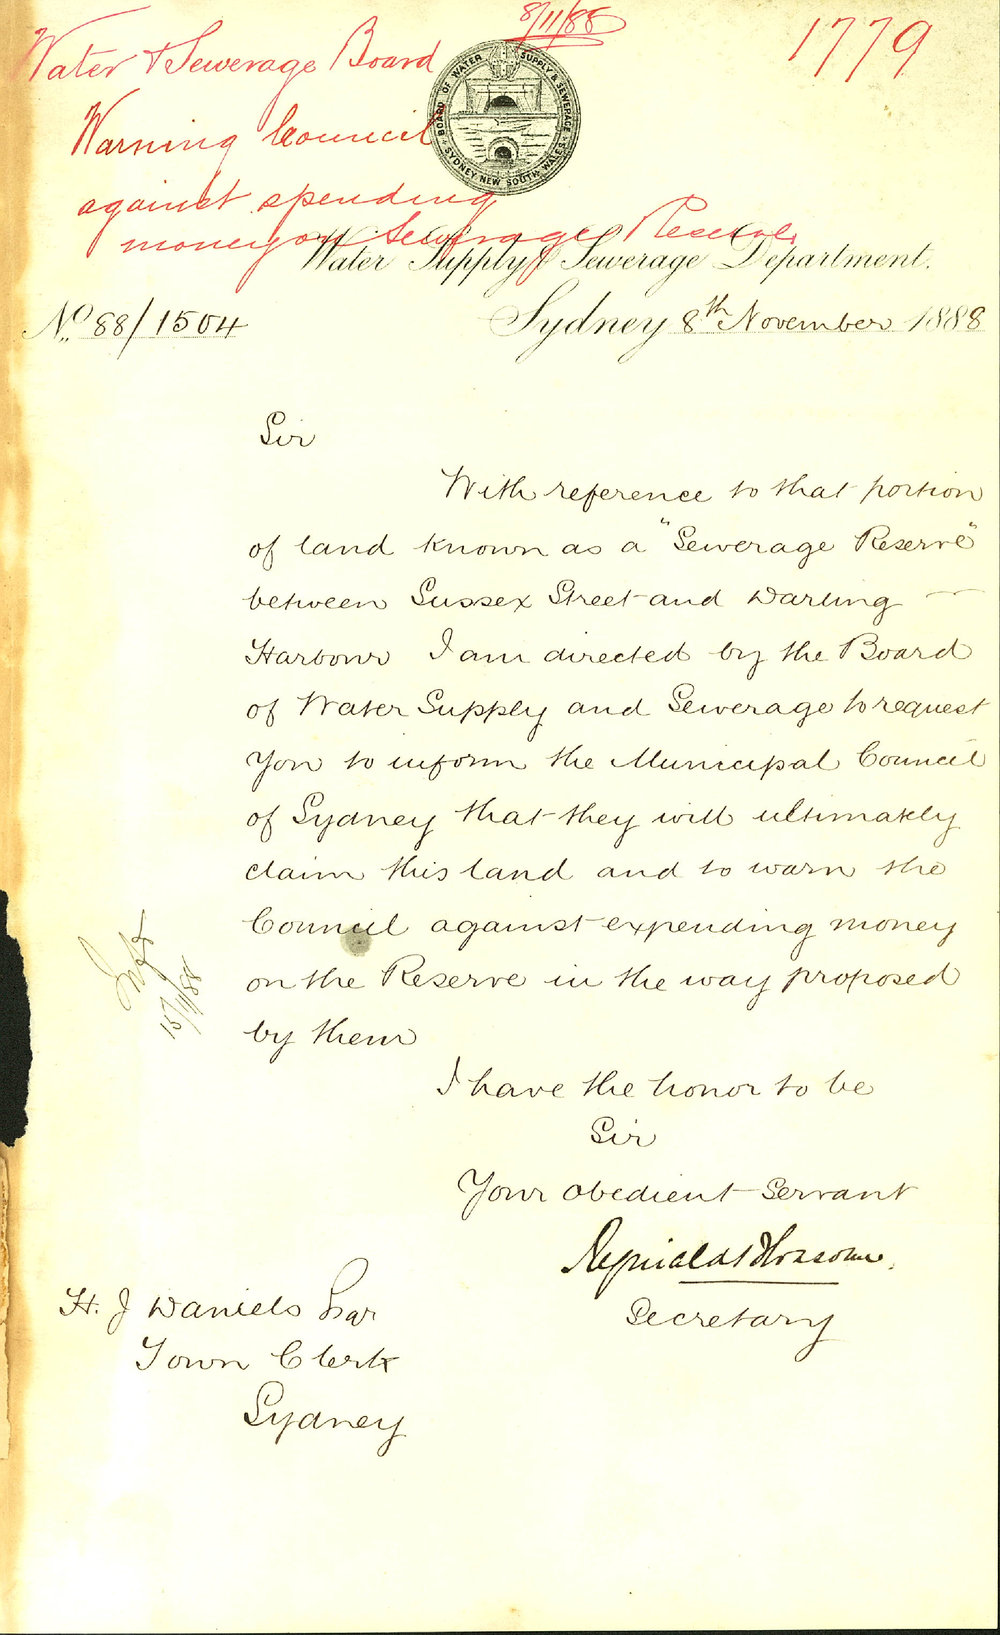 8/11/88
1779
Water & Sewerage Board
Warning Council
against spending
money on Sewerage Reserve
BOARD OF WATER SUPPLY & SEWERAGE
SYDNEY, NEW SOUTH WALES
Water Supply & Sewerage Department.
No. 88/1504
Sydney 8th November 1888
Sir
With reference to that portion
of land known as a "Sewerage Reserve"
between Sussex Street and Darling
Harbour I am directed by the Board
of Water Supply and Sewerage to request
you to inform the Municipal Council
of Sydney that they will ultimately
claim this land and to warn the
Council against expending money
on the Reserve in the way proposed
by them
15/11/88
I have the honor to be
Sir
Your obedient Servant
Secretary
H. J Daniels Esqr
Town Clerk
Sydney